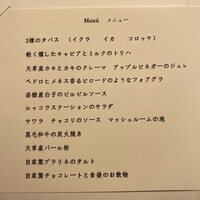 Menú メニュー
3種のタパス (イクラ イカ コロッケ)
軽く燻したキャビアとミルクのトリハ
天草産カキとカキのクレーマ アップルビネガーのジュレ
ペドロヒメネス香るビロードのようなフォアグラ
函館産白子のピルピルソース
ルッコラステーションのサラダ
サワラ チャコリのソース マッシュルームの泡
黒毛和牛の炭火焼き
天草産パール柑
自家製プラリネのタルト
自家製チョコレートと食後のお飲物